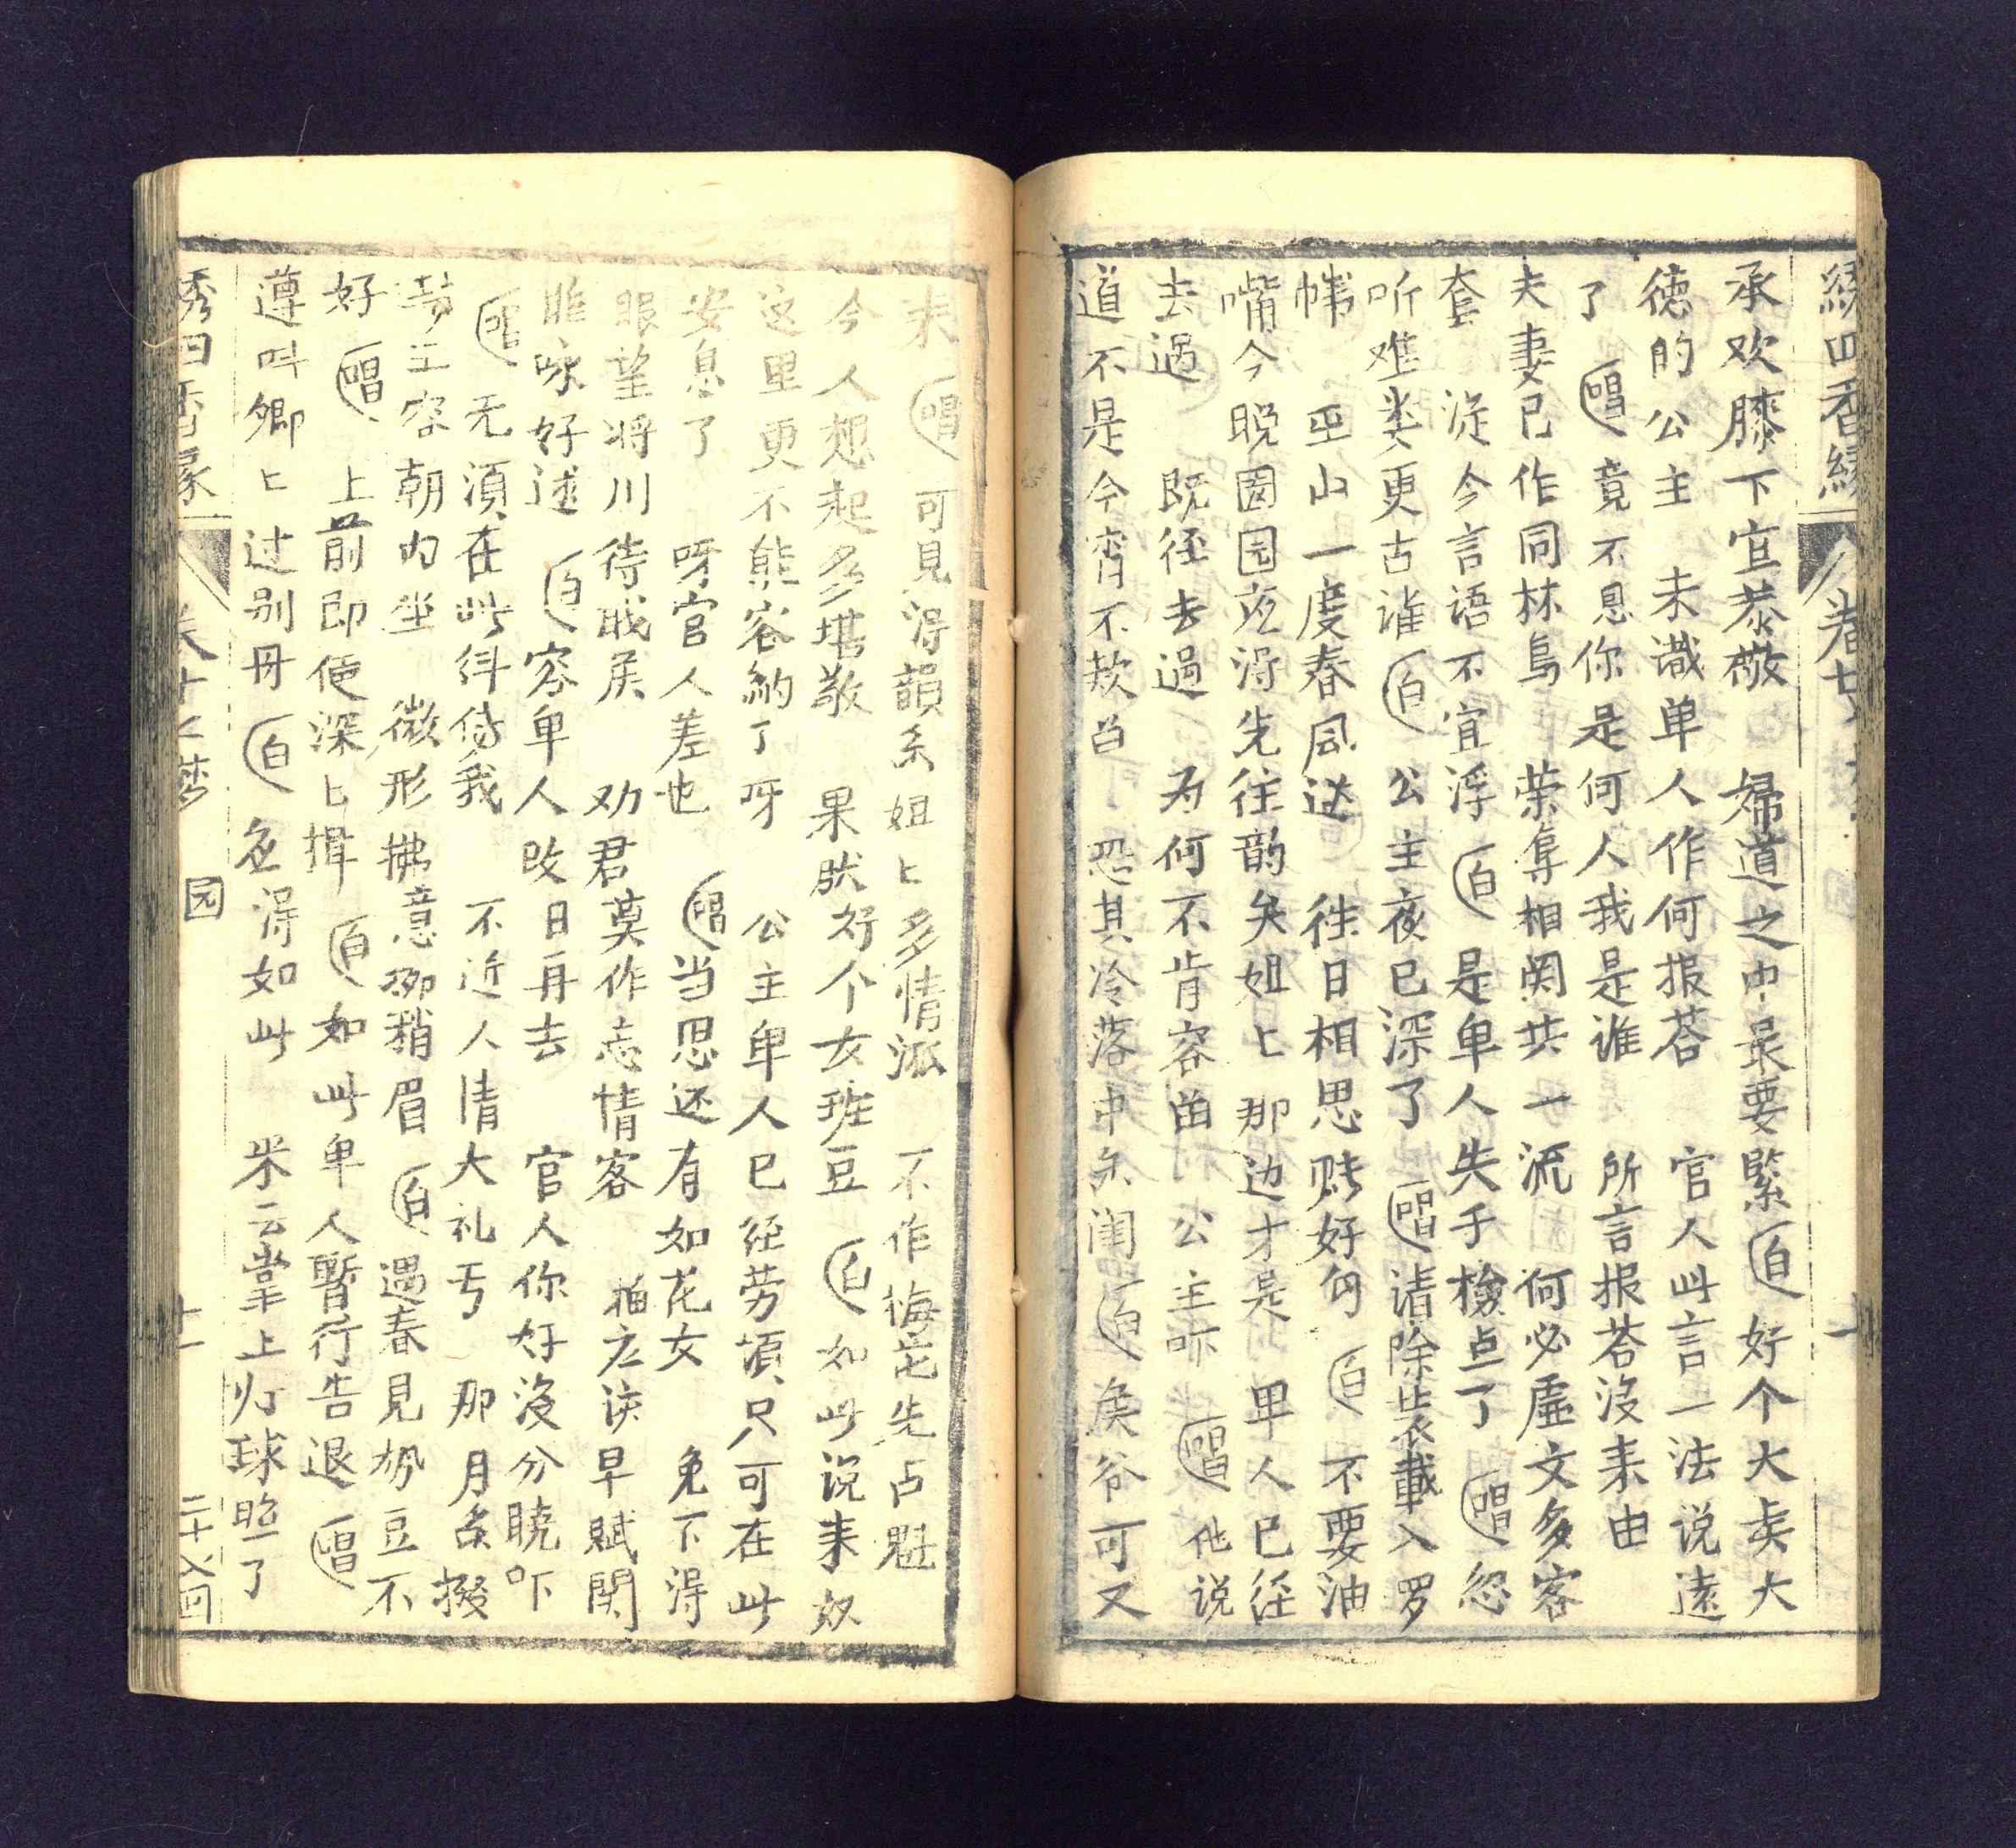 承欢膝下宜恭敬　婦道之中最要緊　白　好个大夫大
德的公主　未識单人作何报荅　官人此言一法说遠
了　唱　竟不思你是何人我是谁　所言报荅沒来由
夫妻已作同林鳥　荣辱相関共一流　何必虚文多客
套　从今言语不宜浮　白　是卑人失手檢点了　唱　忽
听难类更古谁　白　公主夜已深了　唱　清除裝載入罗
幃　巫山一度春風送　往日相思賍好勾　白　不要油
嘴今晚园园应淂先往韵矣姐匕那边才是　卑人已径
去過　既径去過　为何不肯容畄　公主吓　唱　他说
道不是今宵不欵畄　恐其冷落中矢闺　白　矦爷可又
来　唱　可見淂韻系姐匕多情泒　不作梅花先占魁
今人想起多堪敬　果然好个女班豆　白　如此说来奴
这里更不能容納了呀　公主卑人已经劳頓只可在此
安息了　呀官人差也　唱　当思还有如花女　免不淂
眼望将川待戝矦　劝君莫作忘情客　早赋関
雎咏好逑　白　容卑人改日再去　官人你好沒分曉吓
唱　无湏在此纠侍我　不近人情大礼丐　那月
芳主容朝内坐　微形拂意柳稍眉　白　遇春見势豆不
好　唱　上前即便深匕揖　白　如此卑人暫行告退　唱
遵呌卿匕过别毋　白　怎淂如此　采云掌上灯球照了
卷十七
园
十一
二十八回